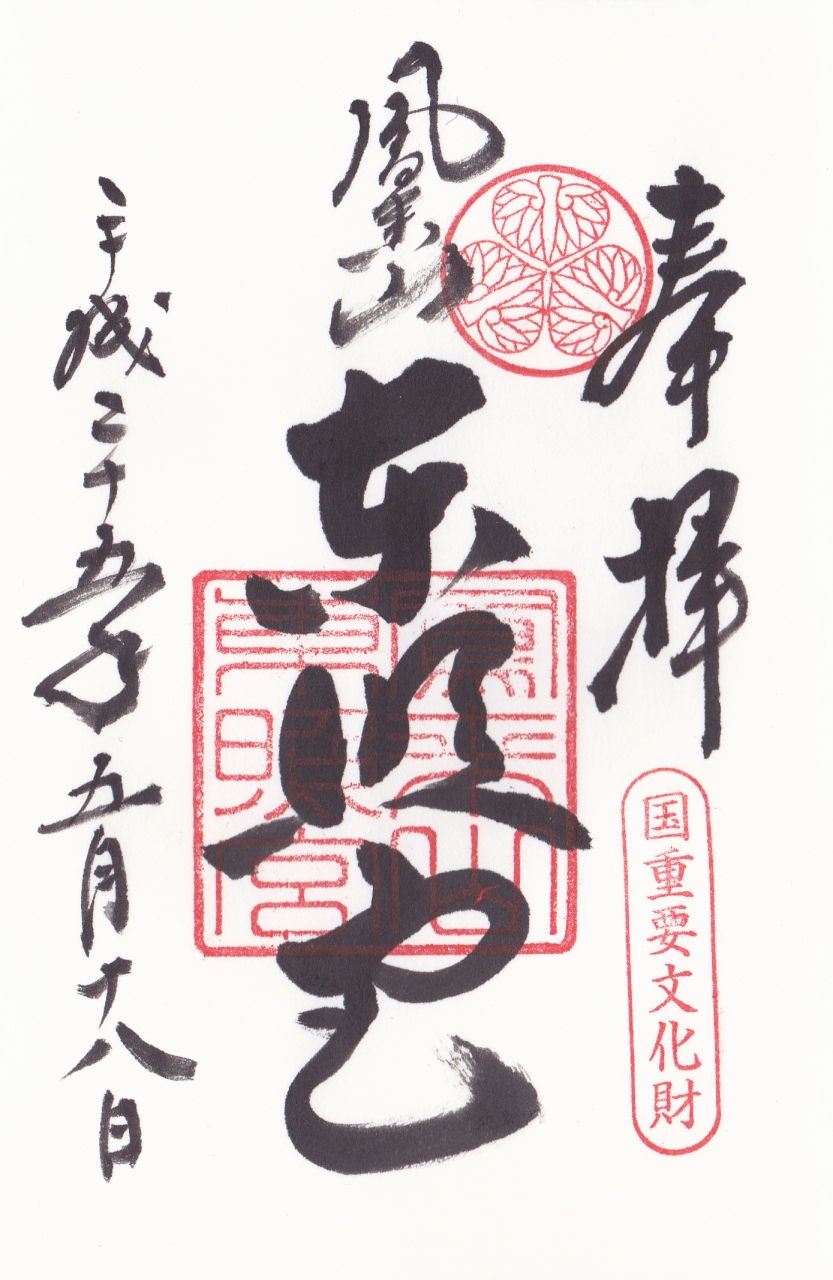 奉拝
国重要文化財
鳳来山
東照宮
鳳来山
東照宮
平成二十五年五月十八日